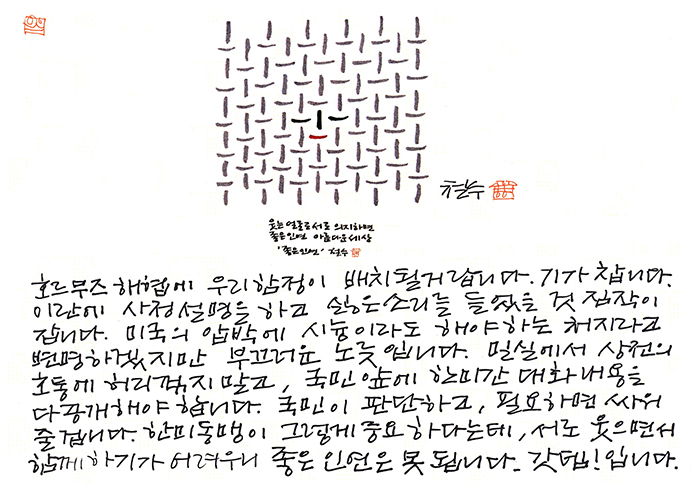 철수
웃는 얼굴로 서로 의지하면
좋은 인연 아름다운 세상
'좋은 인연' 철수
호르무즈 해협에 우리 함정이 배치될거랍니다. 기가 찹니다.
이란에 사정설명을 하고 싫은소리를 들었을 것 짐작이
갑니다. 미국의 압박에 시늉이라도 해야하는 처지라고
변명하겠지만 부끄러운 노릇입니다. 밀실에서 상전의
호통에 허리꺾지 말고, 국민 앞에 한미간 대화내용을
다 공개해야 합니다. 국민이 판단하고, 필요하면 싸워
줄겁니다. 한미동맹이 그렇게 중요하다는데, 서로 웃으면서
함께 하기가 어려우니 좋은 인연은 못 됩니다. 갓뎀! 입니다.